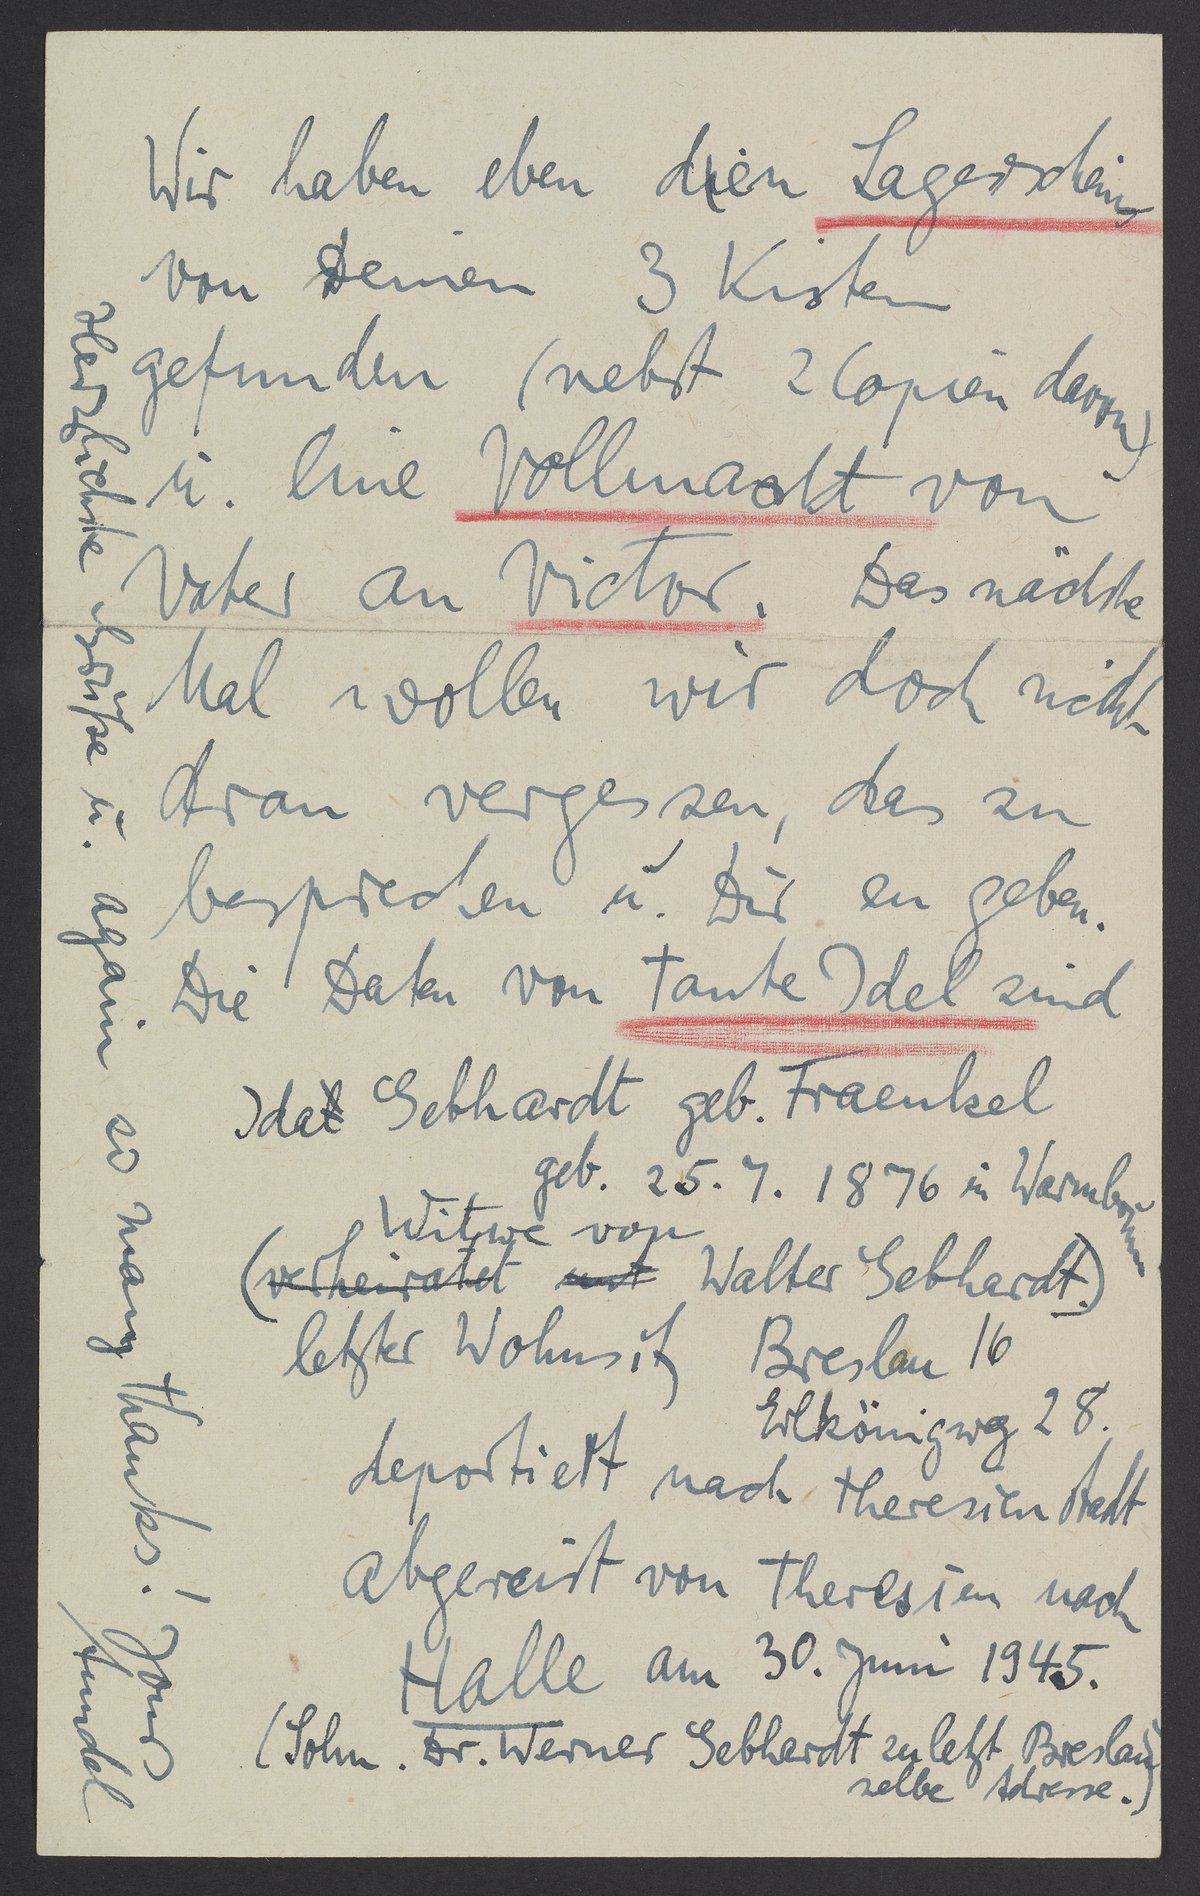 Wir haben eben den Lagerschein
von Deinen 3 Kisten
gefunden (nebst 2 Copien davon)
u. eine Vollmacht von
Vater an Victor. Das nächste
Mal wollen wir doch nicht
dran vergessen, das zu
besprechen u. Dir zu geben.
Die Daten von Tante Idel sind
Ida Gebhardt geb. Fraenkel
geb. 25.7.1876 in Warmbrunn
Witwe von
(verheiratet mit Walter Gebhardt.)
letzter Wohnsitz Breslau 16
Erlkönigweg 28.
deportiert nach Theresienstadt
abgereist von Theresien nach
Halle am 30. Juni 1945.
(Sohn. Dr. Werner Gebhardt zuletzt Breslau
selbe Adresse.)
Herzlichste Grüße u. again so many thanks! Your